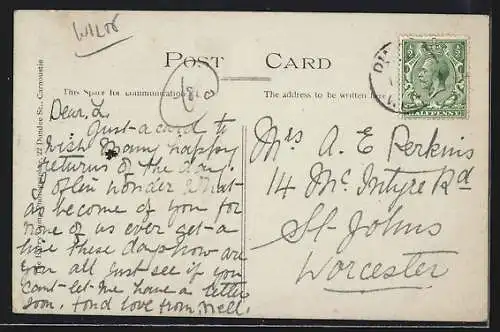 WILD
POST CARD
This Space for Communication
The address to be written here
1810
Dear L.
Just a card to
wish Many happy
returns of the day.
I often wonder What
as become of you for
none of us ever get a
line these days now are
you all Just see if you
cant let me have a letter
soon. fond love from Nell.
Mrs A. E. Perkins
14 McIntyre Rd
St Johns
Worcester
HALFPENNY
22 Dundee St., Carnoustie